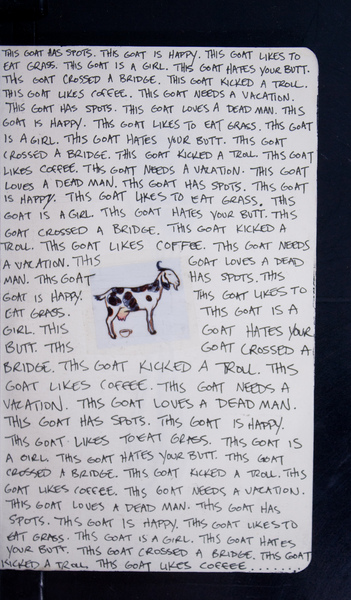 THIS GOAT HAS SPOTS. THIS GOAT IS HAPPY. THIS GOAT LIKES TO
EAT GRASS. THIS GOAT IS A GIRL. THIS GOAT HATES YOUR BUTT.
THIS GOAT CROSSED A BRIDGE. THIS GOAT KICKED A TROLL.
THIS GOAT LIKES COFFEE. THIS GOAT NEEDS A VACATION.
THIS GOAT HAS SPOTS. THIS GOAT LOVES A DEAD MAN. THIS
GOAT IS HAPPY. THIS GOAT LIKES TO EAT GRASS. THIS GOAT
IS A GIRL. THIS GOAT HATES YOUR BUTT. THIS GOAT
CROSSED A BRIDGE. THIS GOAT KICKED A TROLL. THIS GOAT
LIKES COFFEE. THIS GOAT NEEDS A VACATION. THIS GOAT
LOVES A DEAD MAN. THIS GOAT HAS SPOTS. THIS GOAT
IS HAPPY. THIS GOAT LIKES TO EAT GRASS. THIS
GOAT IS A GIRL. THIS GOAT HATES YOUR BUTT. THIS
GOAT CROSSED A BRIDGE. THIS GOAT KICKED A
TROLL. THIS GOAT LIKES COFFEE. THIS GOAT NEEDS
A VACATION. THIS GOAT LOVES A DEAD
MAN. THIS GOAT HAS SPOTS. THIS
GOAT IS HAPPY. THIS GOAT LIKES TO
EAT GRASS. THIS GOAT IS A
GIRL. THIS GOAT HATES YOUR
BUTT. THIS GOAT CROSSED A
BRIDGE. THIS GOAT KICKED A TROLL. THIS
GOAT LIKES COFFEE. THIS GOAT NEEDS A
VACATION. THIS GOAT LOVES A DEAD MAN.
THIS GOAT HAS SPOTS. THIS GOAT IS HAPPY.
THIS GOAT LIKES TO EAT GRASS. THIS GOAT IS
A GIRL. THIS GOAT HATES YOUR BUTT. THIS GOAT
CROSSED A BRIDGE. THIS GOAT KICKED A TROLL. THIS
GOAT LIKES COFFEE. THIS GOAT NEEDS A VACATION.
THIS GOAT LOVES A DEAD MAN. THIS GOAT HAS
SPOTS. THIS GOAT IS HAPPY. THIS GOAT LIKES TO
EAT GRASS. THIS GOAT IS A GIRL. THIS GOAT HATES
YOUR BUTT. THIS GOAT CROSSED A BRIDGE. THIS GOAT
KICKED A TROLL THIS GOAT LIKES COFFEE ........